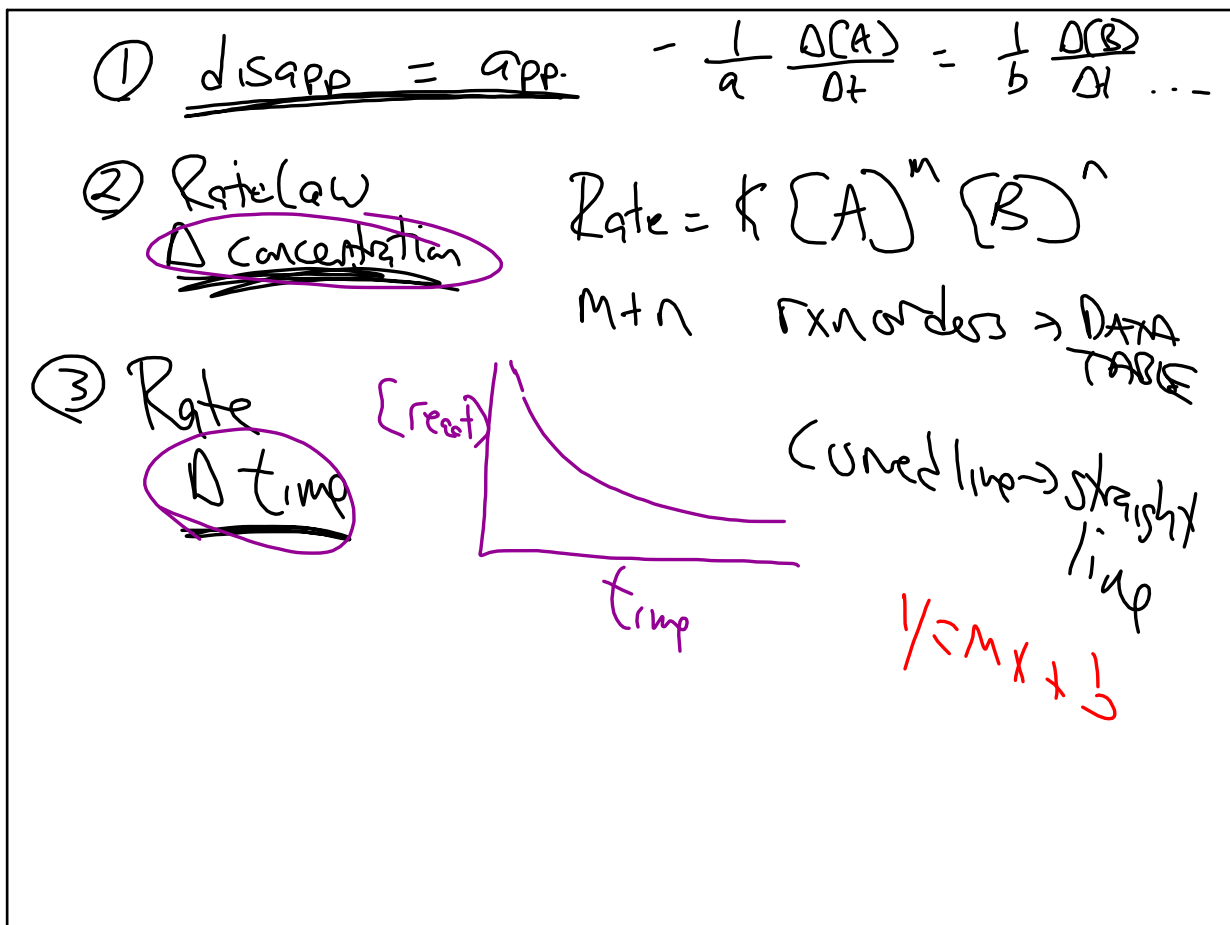 ① disapp = app. - 1/a Δ[A]/Δt = 1/b Δ[B]/Δt ...
② Rate Law
Δ concentration
Rate = k [A]^m [B]^n
m + n rxn orders → DATA TABLE
③ Rate
Δ time
[react]
time
Curved line → straight
line
y = mx + b